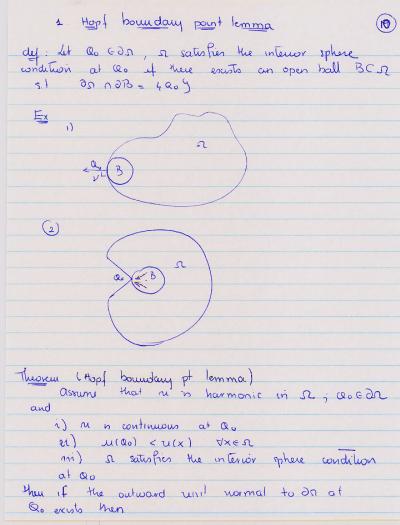 1 Hopf boundary point lemma
10
def: Let Q₀ ∈ ∂Ω, Ω satisfies the interior sphere
condition at Q₀ if there exists an open ball B⊂Ω
s.t ∂Ω ∩ ∂B = {Q₀}
Ex
1)
Ω
Q₀
B
ν
2
Ω
Q₀
B
Theorem (Hopf boundary pt lemma)
Assume that u is harmonic in Ω, Q₀∈∂Ω
and
i) u is continuous at Q₀
ii) u(Q₀) < u(x) ∀x∈Ω
iii) Ω satisfies the interior sphere condition
at Q₀
then if the outward unit normal to ∂Ω at
Q₀ exists then